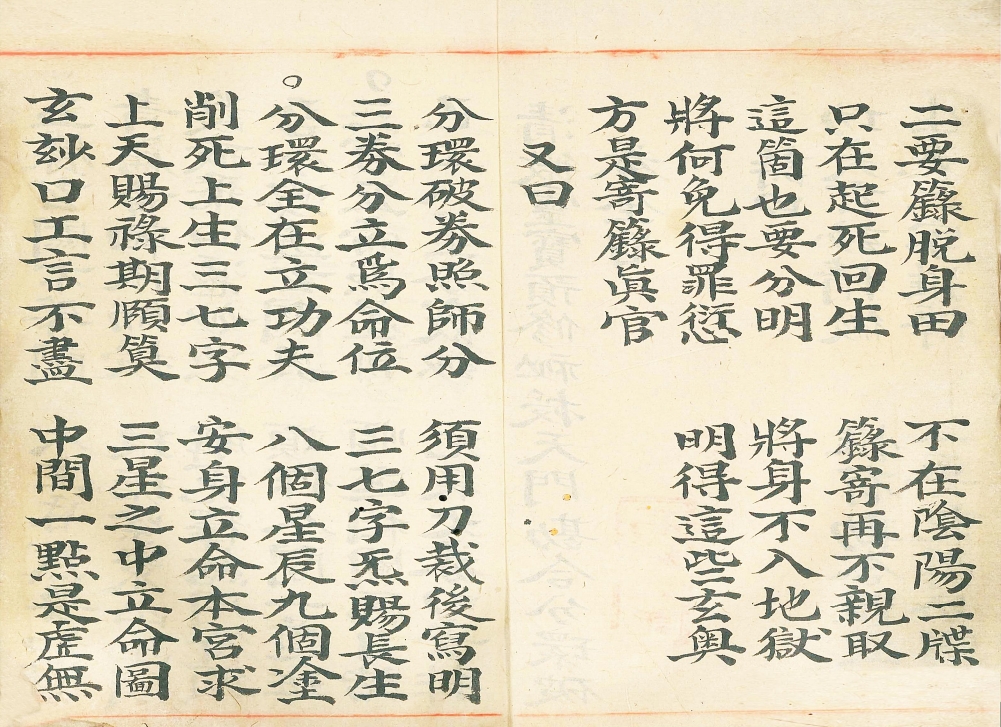 二要籙脱身田　不在陰陽二牒
只在起死回生　籙寄再不親取
這箇也要分明　將身不入地獄
將何免得罪愆　明得這些玄奥
方是寄籙眞官
又曰
分環破券照師分　須用刀裁後寫明
三券分立爲命位　三七字炁賜長生
分環全在立功夫　八個星辰九個塗
削死上生三七字　安身立命本宮求
上天賜祿期頤筭　三星之中立命圖
玄玅口工言不盡　中間一點是虛無